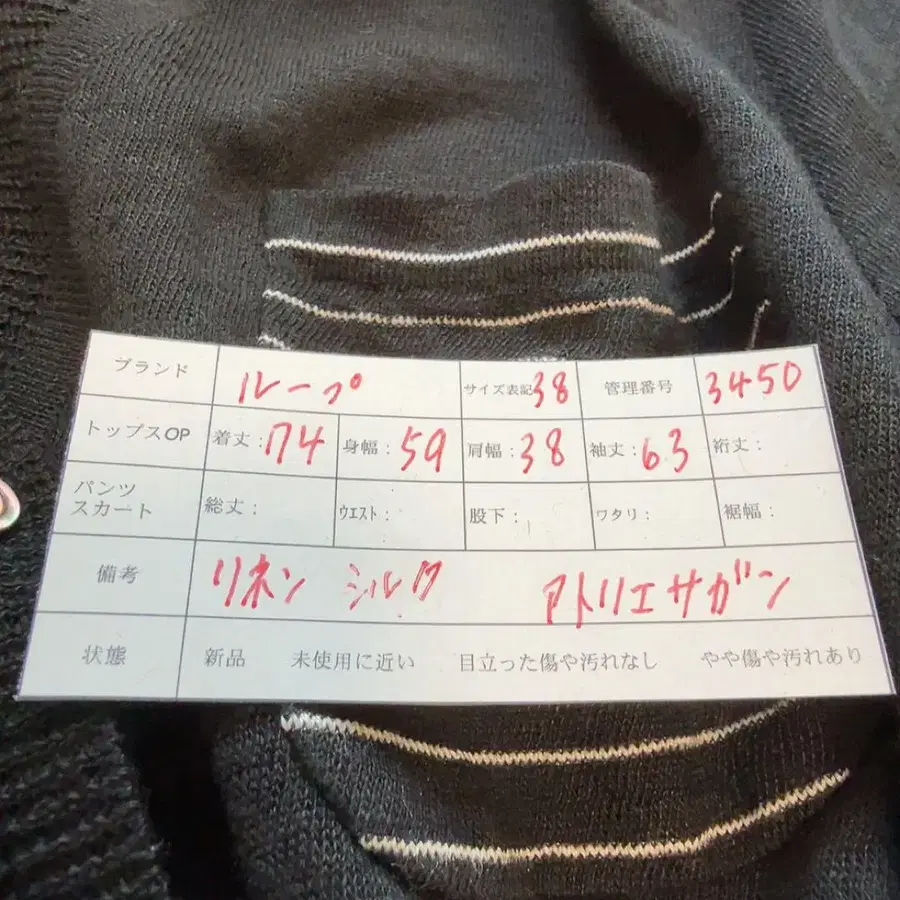 ブランド ループ サイズ表記 38 管理番号 3450
トップスOP 着丈：74 身幅：59 肩幅：38 袖丈：63 裄丈：
パンツ
スカート 総丈： ウエスト： 股下： ワタリ： 裾幅：
備考 リネン シルク アトリエサガン
状態 新品 未使用に近い 目立った傷や汚れなし やや傷や汚れあり